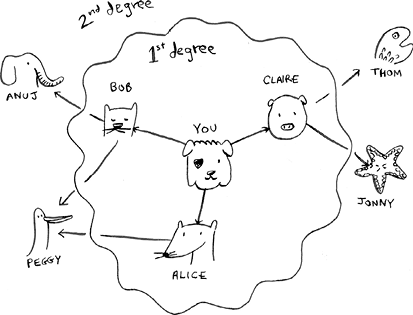 2nd degree
1st degree
ANUJ
BOB
CLAIRE
THOM
YOU
JONNY
PEGGY
ALICE